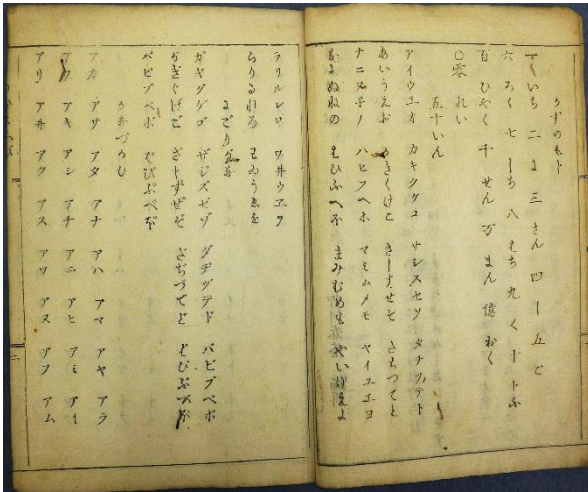 かずのな
一 いち 二 に 三 さん 四 し 五 ご
六 ろく 七 しち 八 はち 九 く 十 じふ
百 ひやく 千 せん 万 まん 億 おく
〇零 れい
五十いん
アイウエオ カキクケコ サシスセソ タチツテト
あいうえお かきくけこ さしすせそ たちつてと
ナニヌ子ノ ハヒフヘホ マミムメモ ヤイユエヨ
なにぬねの はひふへほ まみむめも やいゆえよ
ラリルレロ ワヰウヱヲ
らりるれろ わゐうゑを
にごり
ガギグゲゴ ザジズゼゾ ダヂヅデド バビブベボ
がぎぐげご ざじずぜぞ だぢづでど ばびぶべぼ
パピプペポ ぱぴぷぺぽ
アカ アサ アタ アナ アハ アマ アヤ アラ
アワ アキ アシ アチ アニ アヒ アミ アイ
アリ アヰ アク アス アツ アヌ アフ アム